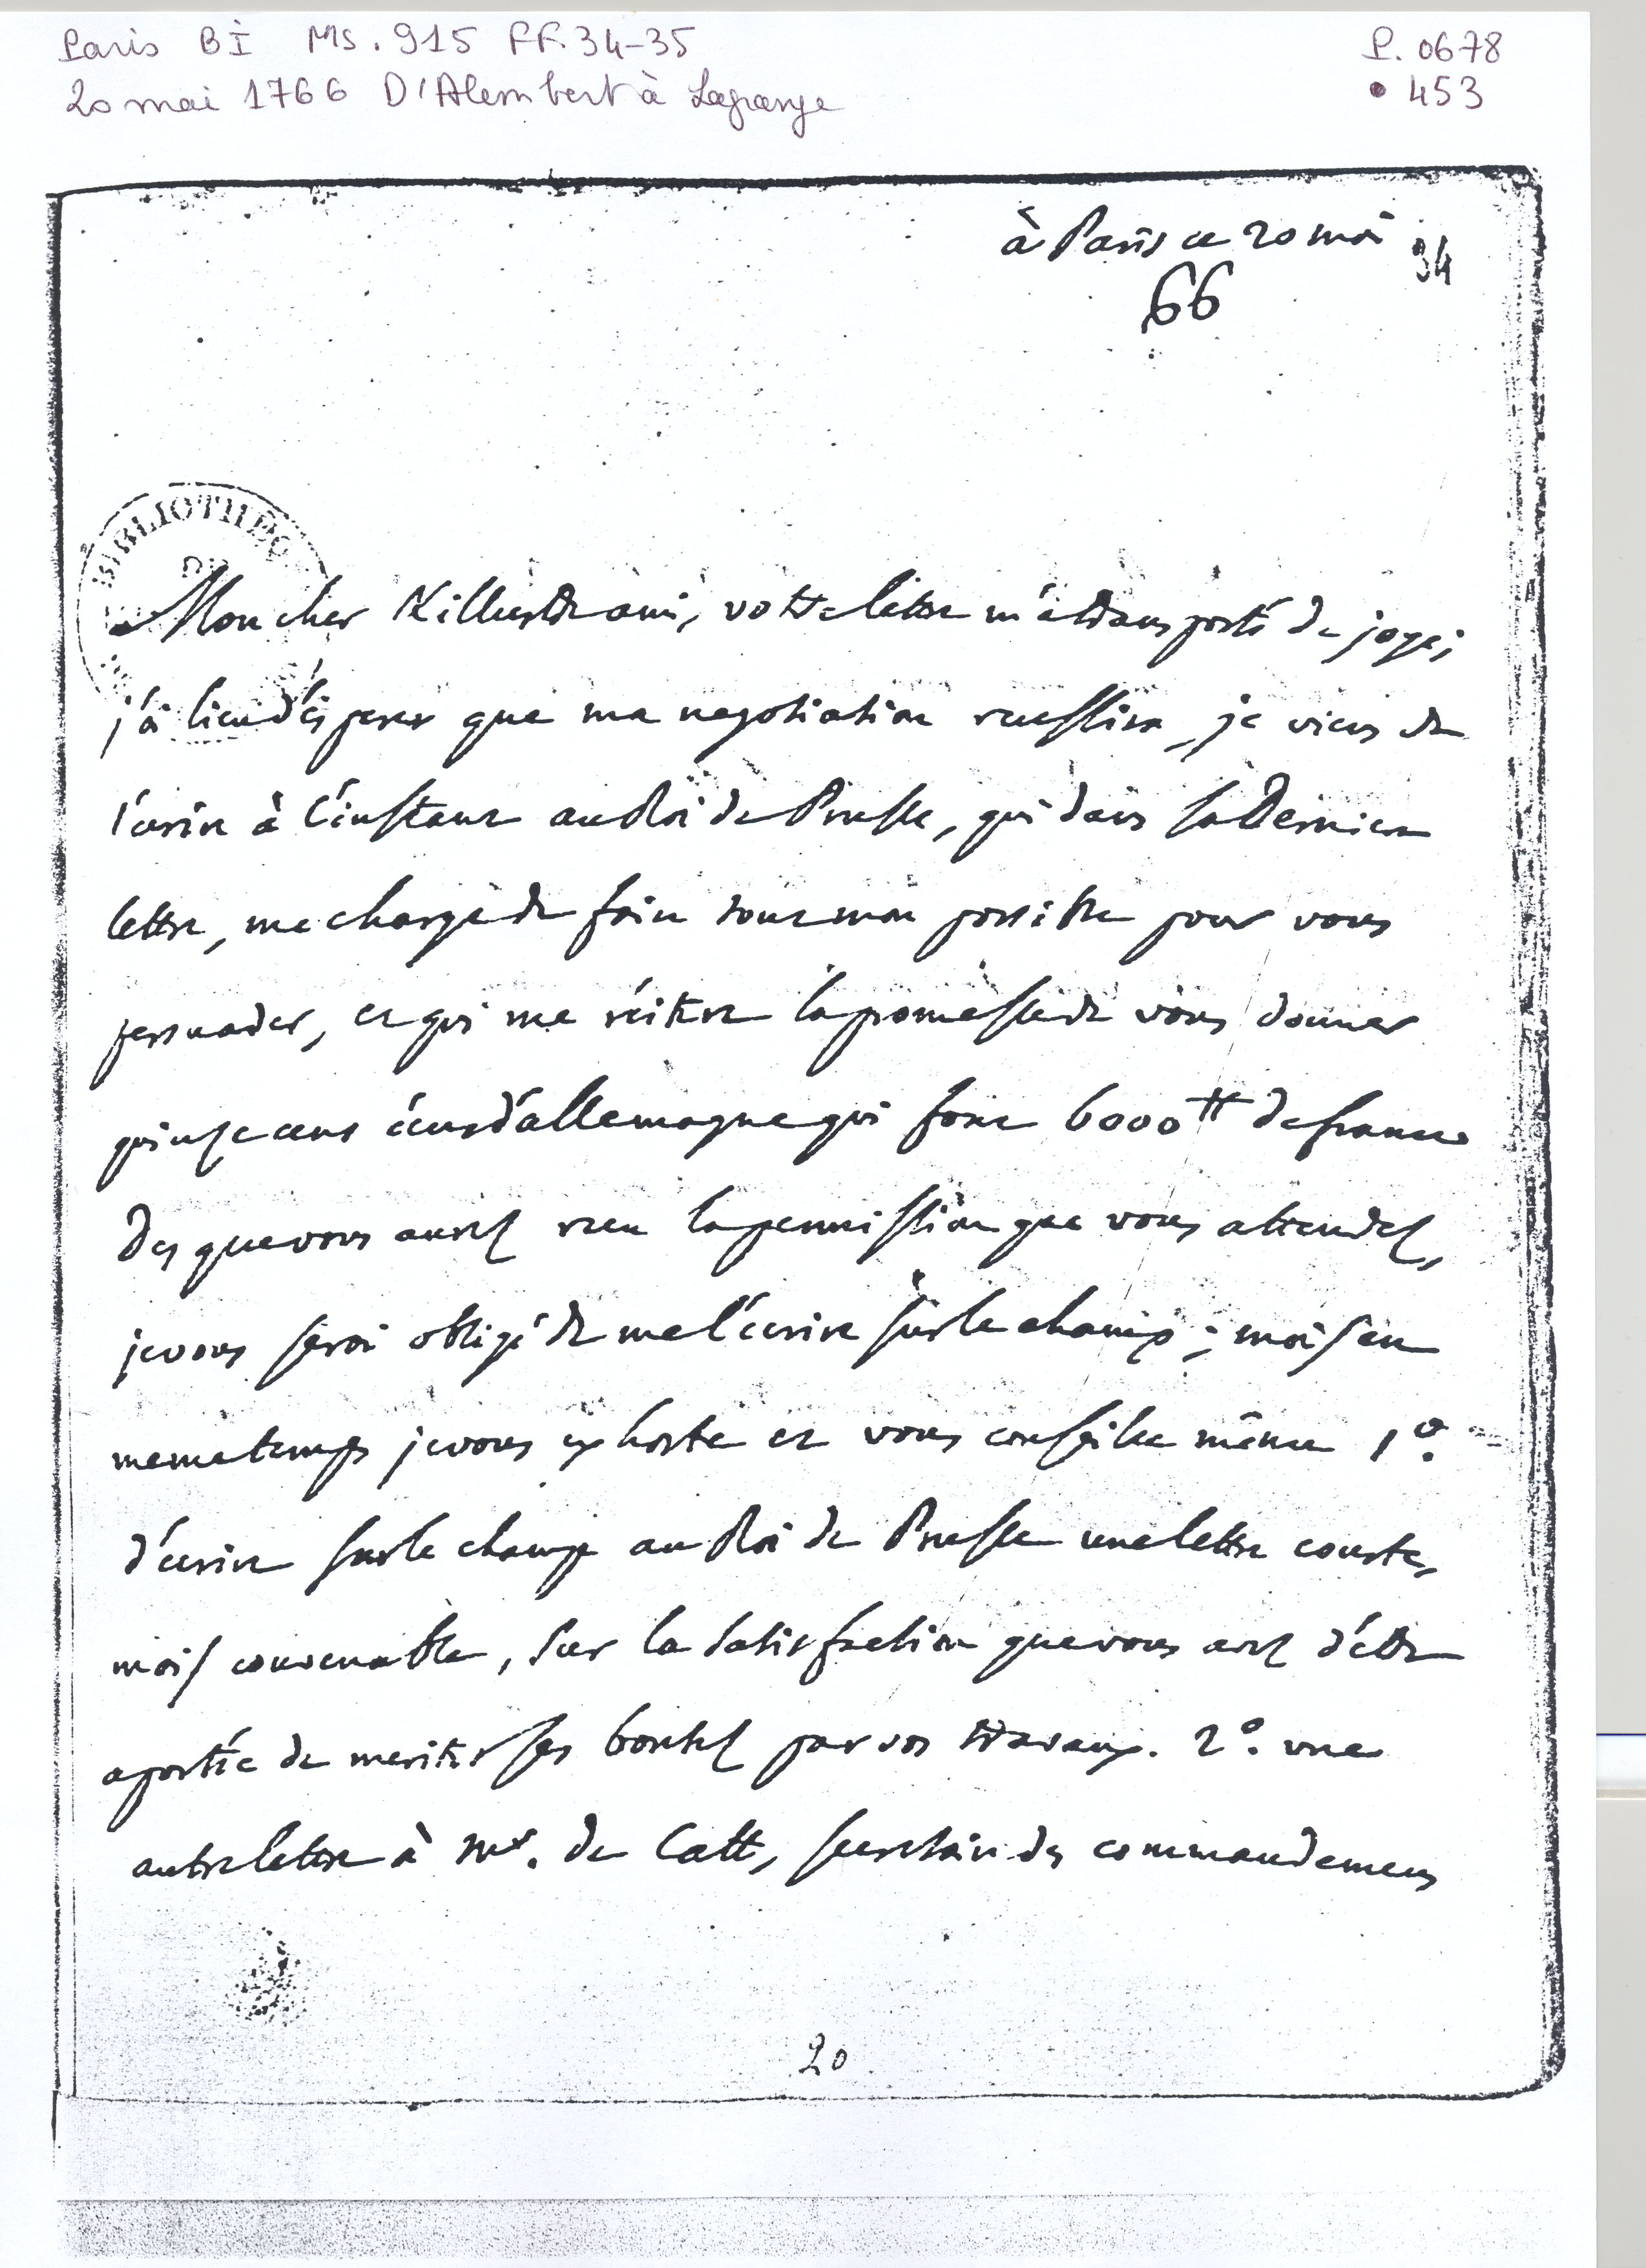 Paris BI Ms. 915 FF. 34-35
P. 0678
20 mai 1766 D'Alembert à Lagrange
• 453
à Paris ce 20 mai
34
66
BIBLIOTHEQ
DE
Mon cher & illustre ami, votre lettre m'a transporté de joye;
j'ai lieu d'esperer que ma negotiation reussira, je viens de
l'ecrire à l'instant au Roi de Prusse, qui dans sa derniere
lettre, me charge de faire tout mon possible pour vous
persuader, et qui me réitere la promesse de vous donner
quinze cens écus d'allemagne qui font 6000 ₶ de france
Des que vous aurez reçu la permission que vous attendez,
je vous serai obligé de me l'écrire sur le champ; mais en
meme temps je vous exhorte et vous conseille même 1°.
d'écrire sur le champ au Roi de Prusse une lettre courte,
mais convenable, sur la satisfaction que vous avez d'etre
a portée de meriter ses bontez par vos travaux. 2°. une
autre lettre à Mr. de Catt, secretaire des commandemens
20